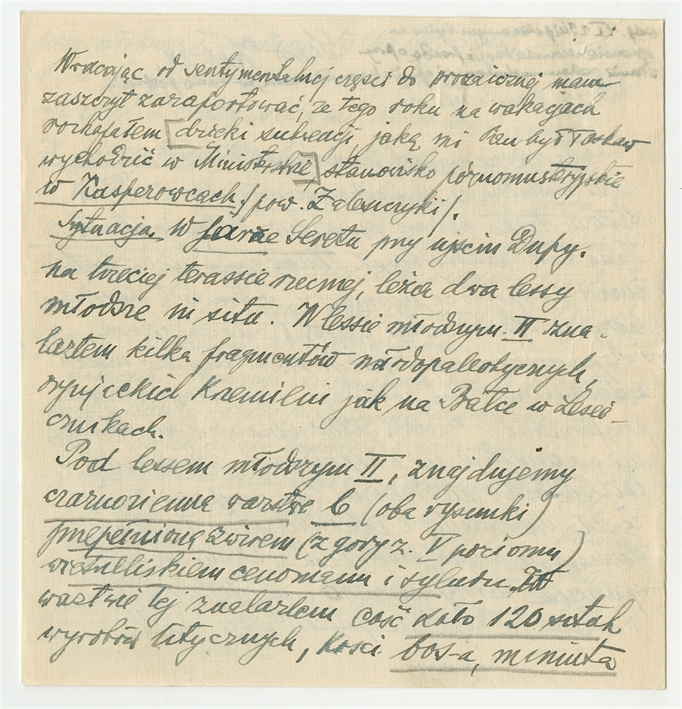 Wracając od sentymentalnej części do prozaicznej mam
zaszczyt zaraportować, że tego roku na wakacjach
rozkopałem [dzięki subwencji, jaką mi Pan był łaskaw
wychodzić w Ministerstwie] stanowisko późnomusteryjskie
w Kasperowcach /pow. Zaleszczyki/.
Sytuacja. W jarze Seretu przy ujściu Dupy.
na trzeciej terassie rzecznej, leżą dwa lessy
młodsze in situ. W lessie młodszym II zna-
lazłem kilka fragmentów nardopaleotycznych,
krzemieni jak na Bałce w Lesie-
cznikach.
Pod lessem młodszym II, znajdujemy
czarnoziemną warstwę b (oba rysunki)
przepełnioną żwirem (z góry z. V poziomu)
cenomanu i syluru. W
warstwie tej znalazłem cość koło 120 sztuk
wyrobów litycznych, kości bos-a, mamuta